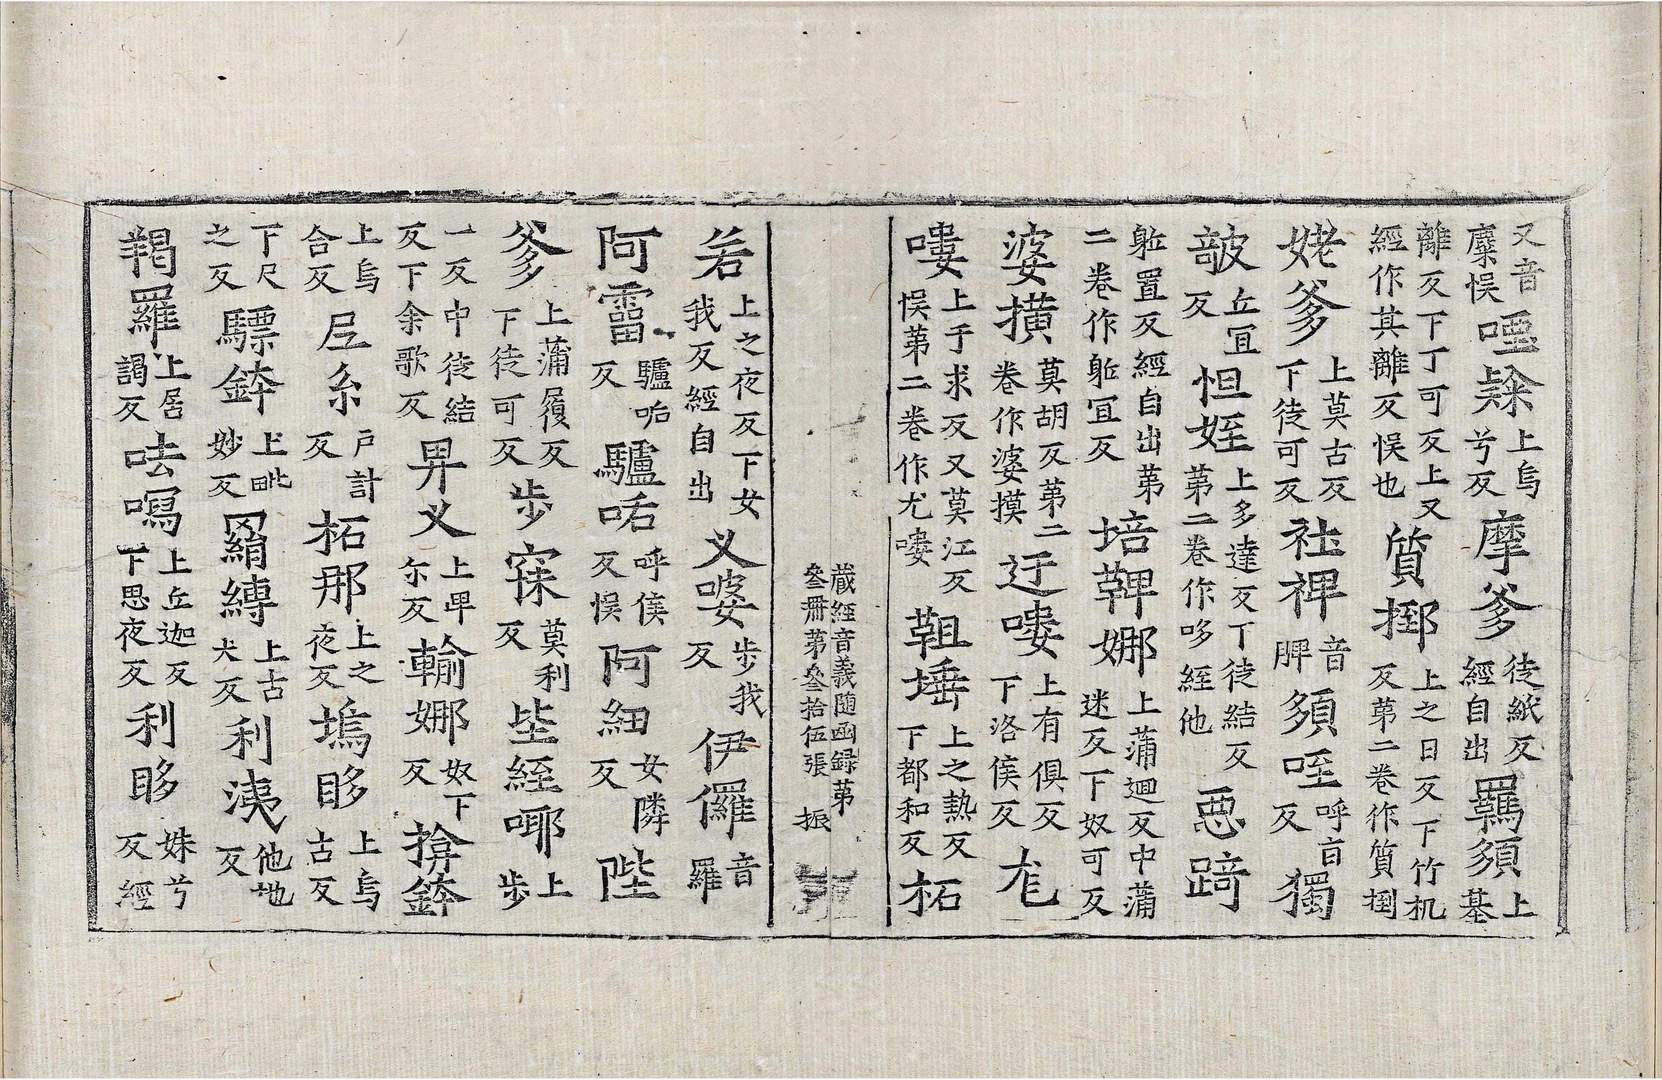 又音糜悮𠷺𣩠上烏兮反摩爹徒紙反經自出羈頞上基
離反下丁可反上又經作其離反悮也質挪上之日反下竹机反第二卷作質捯
姥爹上莫古反下徒可反社裨音脾頞咥呼吉反獨
㿱丘宜反怛姪上多達反丁徒結反第二卷作哆絰他惡踦
躯置反經自出第二卷作躯冝反培鞞娜上蒲迴反中蒲迷反下奴可反
婆㨪莫胡反第二卷作婆摸迂嘍上有俱反下洛侯反尨
嘍上于求反又莫江反悮第二卷作尤嘍䩢埵上之熱反下都和反柘
藏經音義随函録第叁冊第叁拾伍張 振
若上之夜反下女我反經自出义婆步我反伊儸音羅
阿雷驢㖃反驢㖃呼侯反悮阿細女隣反陛
爹上蒲履反下徒可反步寐莫利反坒絰哪上步
一反中徒結反下余歌反畀义上畀尓反輸娜奴下反揜鉢
上烏合反㞐系戸計反柘那上之夜反塢哆上烏古反
下尺之反驃鉢上毗妙反羂縛上古犬反利洟他地反
羯羅上居謁反呿㕐上丘迦反下思夜反利眵姝兮反經